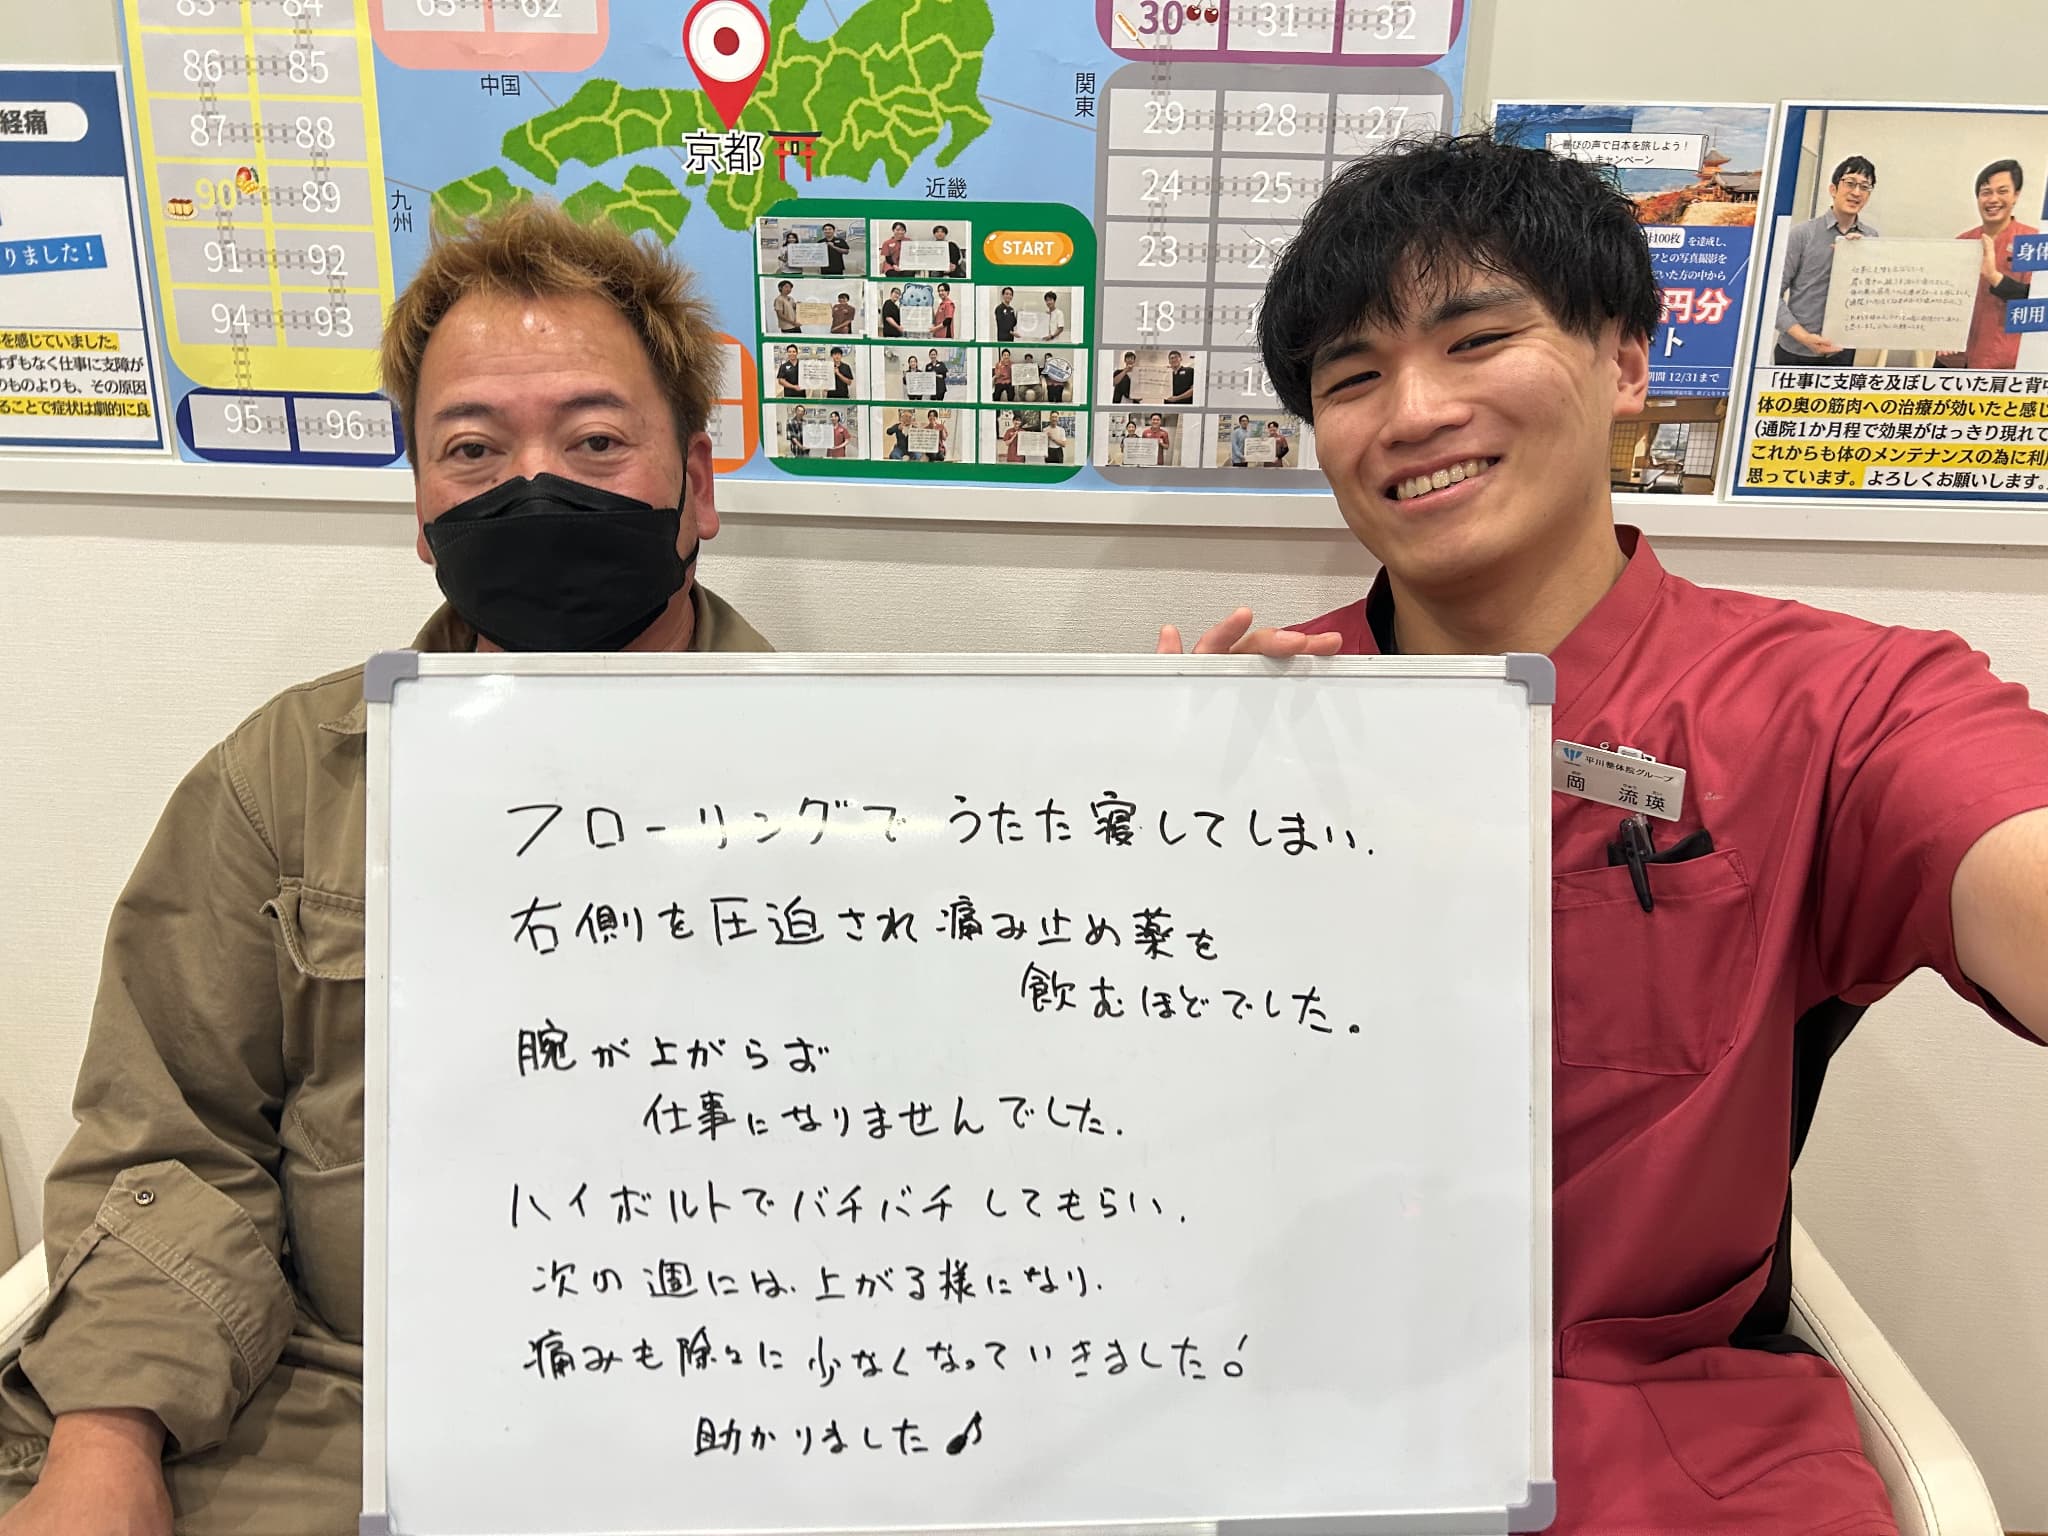 83 84
86 85
87 88
90 89
91 92
94 93
95 96
63 62
中国
九州
京都
近畿
関東
START
30 31 32
29 28 27
24 25
23
18
経痛
りました！
を感じていました。
はずもなく仕事に支障が
のものよりも、その原因
ることで症状は劇的に良
喜びの声で日本を旅しよう！
キャンペーン
100枚 を達成し、
フとの写真撮影を
だいた方の中から
円分
ト
期間 12/31まで
身体
利用
「仕事に支障を及ぼしていた肩と背中
体の奥の筋肉への治療が効いたと感じ
(通院1か月程で効果がはっきり現れて
これからも体のメンテナンスの為に利用
思っています。よろしくお願いします。
平川整体院グループ
岡 流瑛
フローリングでうたた寝してしまい.
右側を圧迫され痛み止め薬を
飲むほどでした。
腕が上がらず
仕事になりませんでした.
ハイボルトでバチバチしてもらい.
次の週には.上がる様になり.
痛みも除々に少なくなっていきました!
助かりました♪